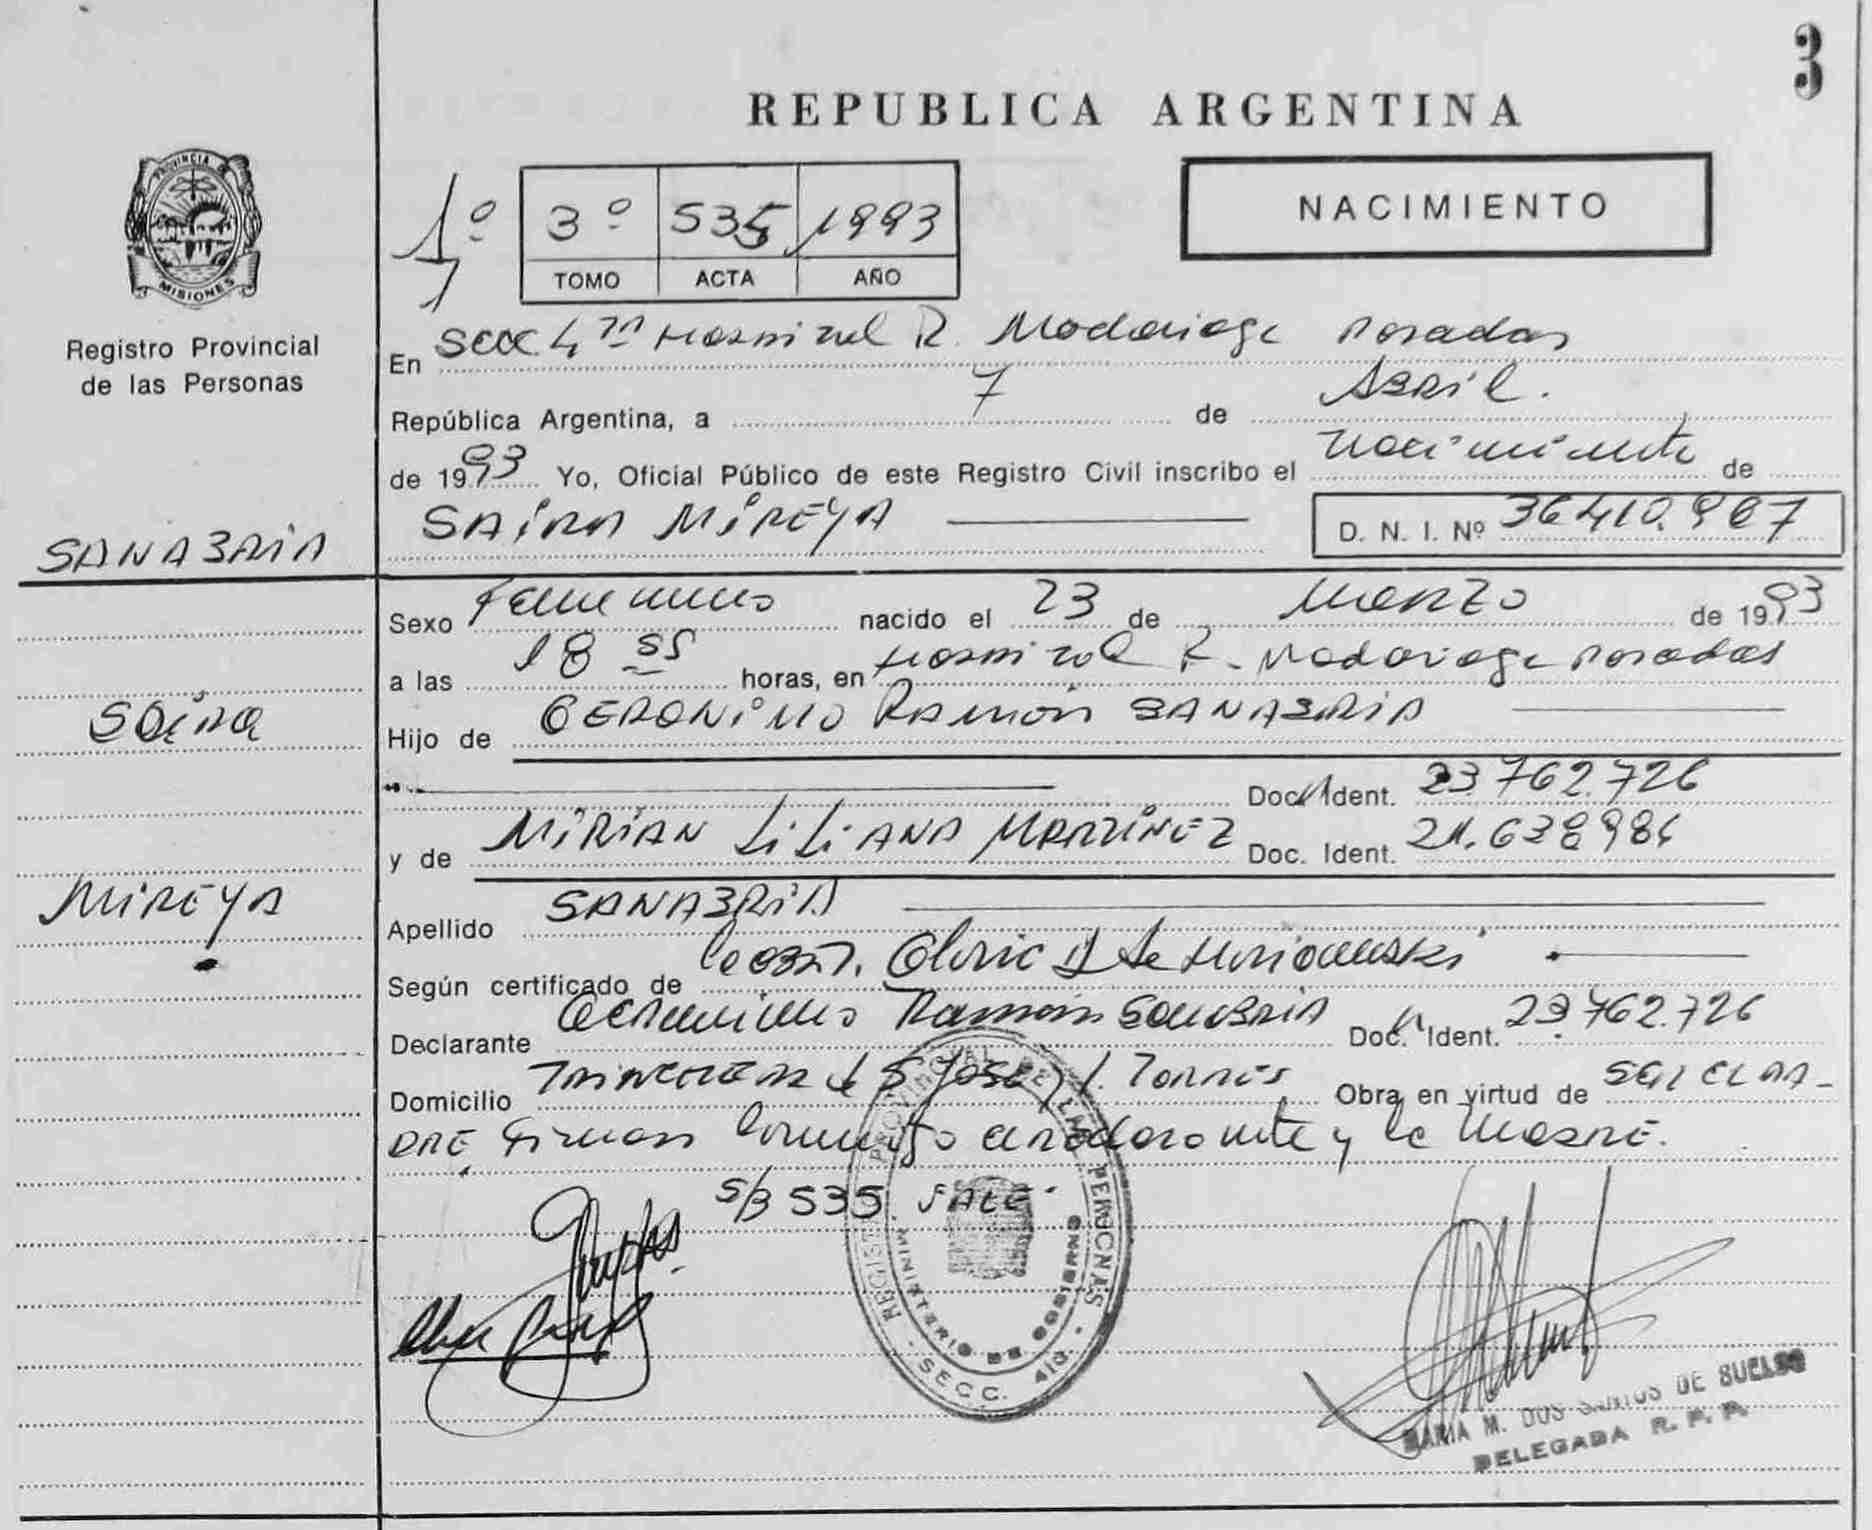 3
REPUBLICA ARGENTINA
PROVINCIA DE
MISIONES
Registro Provincial
de las Personas
1º
3º 535 1993
TOMO ACTA AÑO
NACIMIENTO
En Secc. 4ta Hospital R. Madariaga Posadas
República Argentina, a 7 de Abril.
de 1993 Yo, Oficial Público de este Registro Civil inscribo el nacimiento de
SANABRIA
SAIRA MIREYA D. N. I. Nº 36410.907
Sexo Femenino nacido el 23 de Marzo de 1993
a las 18 55 horas, en Hospital R. Madariaga Posadas
Saira
Hijo de GERONIMO RAMÓN SANABRIA
Doc. Ident. 23 762.726
y de MIRIAN LILIANA MARTINEZ Doc. Ident. 21.638984
MIREYA
Apellido SANABRIA
Según certificado de
Declarante Geronimo Ramón Sanabria Doc. Ident. 23 762.726
Domicilio Trincheras de S. José y L. Torres Obra en virtud de SER EL PA-
DRE Firman conmigo el declarante y la Madre.
S/B 535 VALE
REGISTRO PROVINCIAL DE LAS PERSONAS
MINISTERIO DE GOBIERNO
SECC.
MARIA M. DOS SANTOS DE SUELDO
DELEGADA R. P. P.